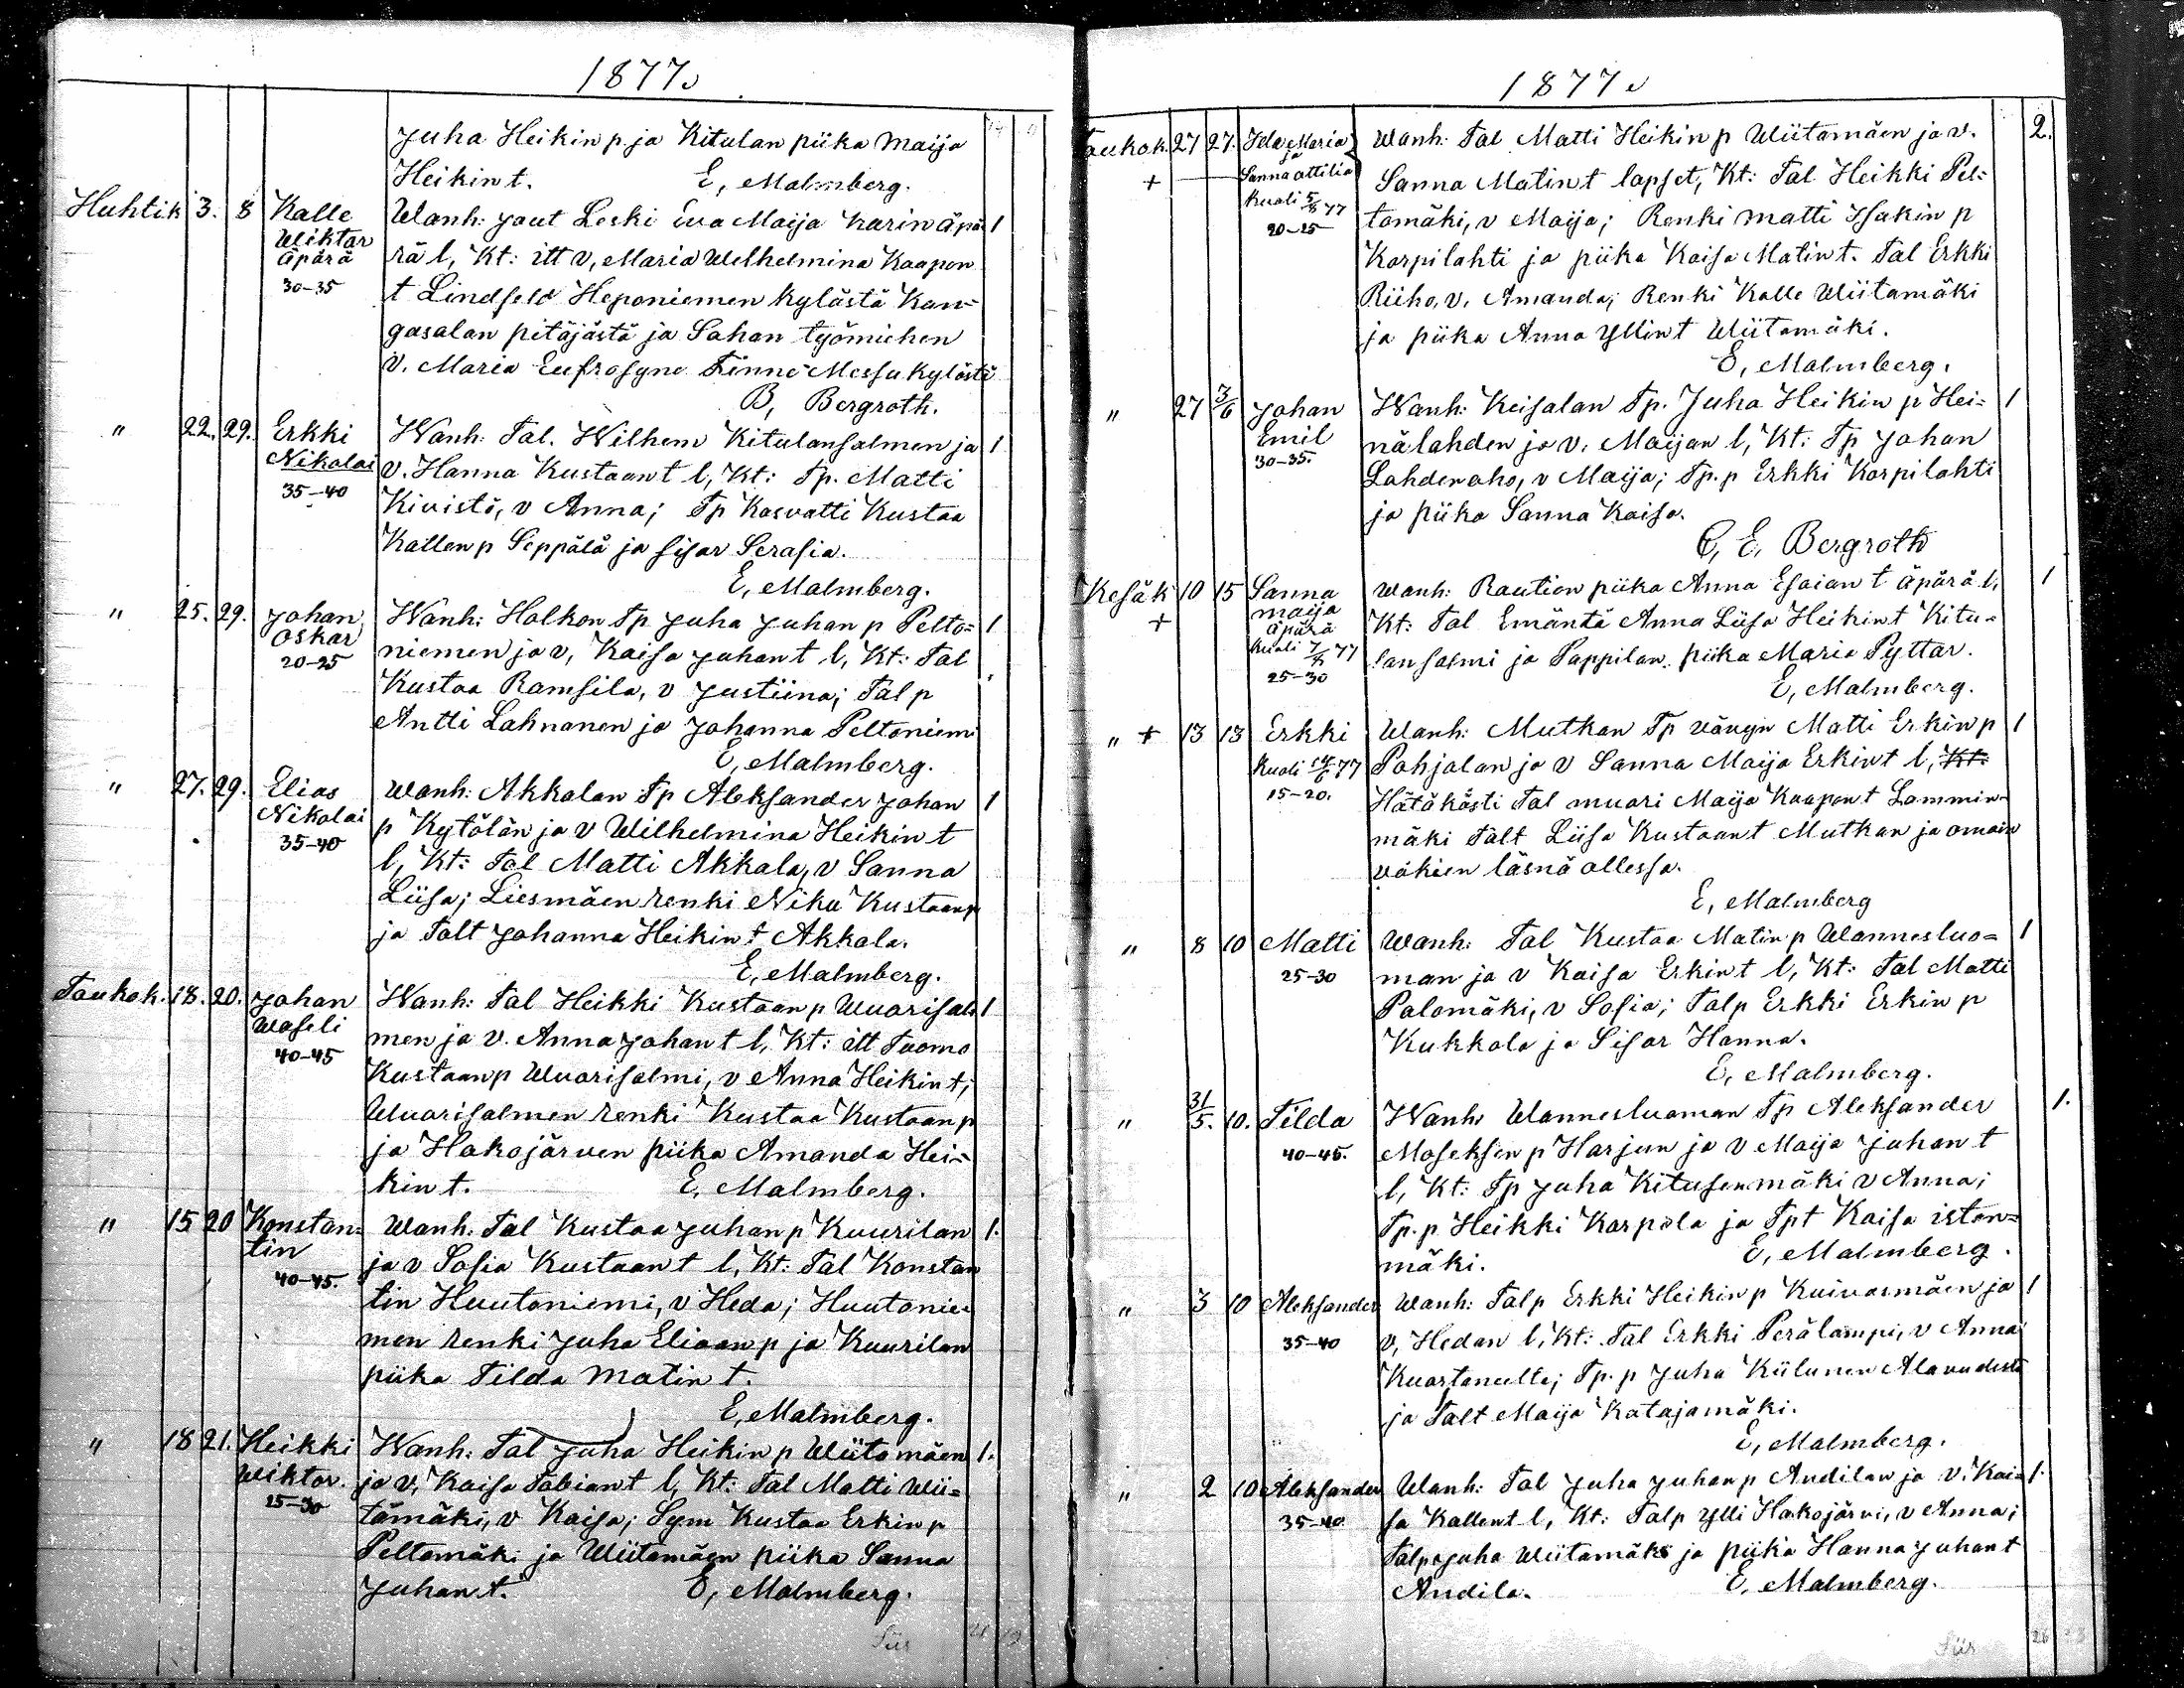 1877.
Juha Heikin p. ja Kitulan piika Maija
Heikin t. E, Malmberg.
Huhtik 3. 8 Kalle Wanh: Jaut Leski Eva Maija Karin äpä- 1
Wiktor
äpärä rä l, Kt: itt v, Maria Welhelmina Kaapon
30-35 t Lindfeld Heponiemen kylästä Kan-
gasalan pitäjästä ja Sahan työmiehen
v. Maria Eufrosyne Finne Messukylästä
B, Bergroth.
" 22. 29. Erkki Wanh: Tal. Wilhem Kitulansalmen ja 1
Nikolai v. Hanna Kustaan t l, Kt: Tp. Matti
35-40 Kivistö, v Anna; Tp Kasvatti Kustaa
Kallen p Seppälä ja sisar Serafia.
E, Malmberg.
" 25. 29. Johan Wanh: Holkon Tp Juha Juhan p Pelto= 1
Oskar niemen ja v, Kaisa Juhan t l, Kt: Tal
20-25 Kustaa Ramsila, v Justiina; Tal p
Antti Lahnanen ja Johanna Peltoniemi
E, Malmberg.
" 27. 29. Elias Wanh: Akkalan Tp Aleksander Johan 1
Nikolai p Kytölän ja v Wilhelmina Heikin t
35-40 l, Kt: Tal Matti Akkala, v Sanna
Liisa; Liesmäen renki Niku Kustaan p
ja Talt Johanna Heikin t Akkala.
E, Malmberg.
Toukok. 18. 20. Johan Wanh: Tal Heikki Kustaan p Wuorisal- 1
Waseli men ja v. Anna Johan t l, Kt: itt Tuomo
40-45 Kustaan p Wuorisalmi, v Anna Heikin t;
Wuorisalmen renki Kustaa Kustaan p
ja Hakojärven piika Amanda Hei-
kin t. E, Malmberg.
" 15 20 Konstan= Wanh: Tal Kustaa Juhan p Kuurilan 1.
tin ja v Sofia Kustaan t l, Kt: Tal Konstan
40-45. tin Huutoniemi, v Heda; Huutonie-
men renki Juha Eliaan p ja Kuurilan
piika Tilda Matin t.
E, Malmberg.
" 18 21. Heikki Wanh: Tal Juha Heikin p Wiitamäen 1.
Wiktor. ja v, Kaisa Fabian t l, Kt: Tal Matti Wii=
25-30 tamäki, v Kaisa; Sym Kustaa Erkin p
Peltamäki ja Wiitamäen piika Sanna
Juhan t. E, Malmberg.
Siir
1877.
Toukok. 27 27. Ida Maria Wanh: Tal Matti Heikin p Wiitamäen ja v. 2.
ja
+ Sanna Attilia Sanna Matin t lapset, Kt: Tal Heikki Pel-
Kuoli 5/8 77 tomäki, v Maija; Renki Matti Isakin p
20-25 Karpilahti ja piika Kaisa Matin t. Tal Erkki
Riiho, v. Amanda; Renki Kalle Wiitamäki
ja piika Anna Yllin t Wiitamäki.
E, Malmberg.
" 27 3/6 Johan Wanh: Keisalan Tp. Juha Heikin p Hei= 1
Emil nälahden ja v. Maijan l, Kt: Tp Johan
30-35. Lahdenaho, v Maija; Tp. p Erkki Korpilahti
ja piika Sanna Kaisa.
C, E, Bergroth
Kesäk 10 15 Sanna Wanh: Raution piika Anna Esaian t äpärä l, 1
+ Maija Kt: Tal Emäntä Anna Liisa Heikin t Kitu-
äpärä
Kuoli 77 lansalmi ja Pappilan piika Maria Pyttar.
25-30
E, Malmberg.
" + 13 13 Erkki Wanh: Mutkan Tp vävyn Matti Erkin p 1
Kuoli 14/6 77 Pohjalan ja v Sanna Maija Erkin t l, Kt:
15-20. Hätäkästi Tal muori Maija Kaapon t Lammin-
mäki Talt Liisa Kustaan t Mutkan ja omain
väkien läsnä ollessa.
E, Malmberg
" 8 10 Matti Wanh: Tal Kustaa Matin p Wannesluo= 1
25-30 man ja v Kaisa Erkin t l, Kt: Tal Matti
Palomäki, v Sofia; Talp Erkki Erkin p
Kukkola ja Sisar Hanna.
E, Malmberg.
" 31/5. 10. Tilda Wanh: Wannesluoman Tp Aleksander 1.
40-45. Moseksen p Harjun ja v Maija Juhan t
l, Kt: Tp Juha Kitusenmäki v Anna;
Tp. p Heikki Karpola ja Tpt Kaisa iston=
mäki. E, Malmberg.
" 3 10 Aleksander Wanh: Talp Erkki Heikin p Kuivasmäen ja 1
35-40 v, Hedan l, Kt: Tal Erkki Perälampi, v Anna
Kuortaneelta; Tp. p Juha Kiilunen Alavudesta
ja Talt Maija Katajamäki.
E, Malmberg.
" 2 10 Aleksander Wanh: Tal Juha Juhan p Andilan ja v. Kai= 1.
35-40 sa Kallen t l, Kt: Talp Ylli Hakojärvi, v Anna;
Talp Juha Wiitamäki ja piika Hanna Juhan t
Andila. E, Malmberg.
Siir 26